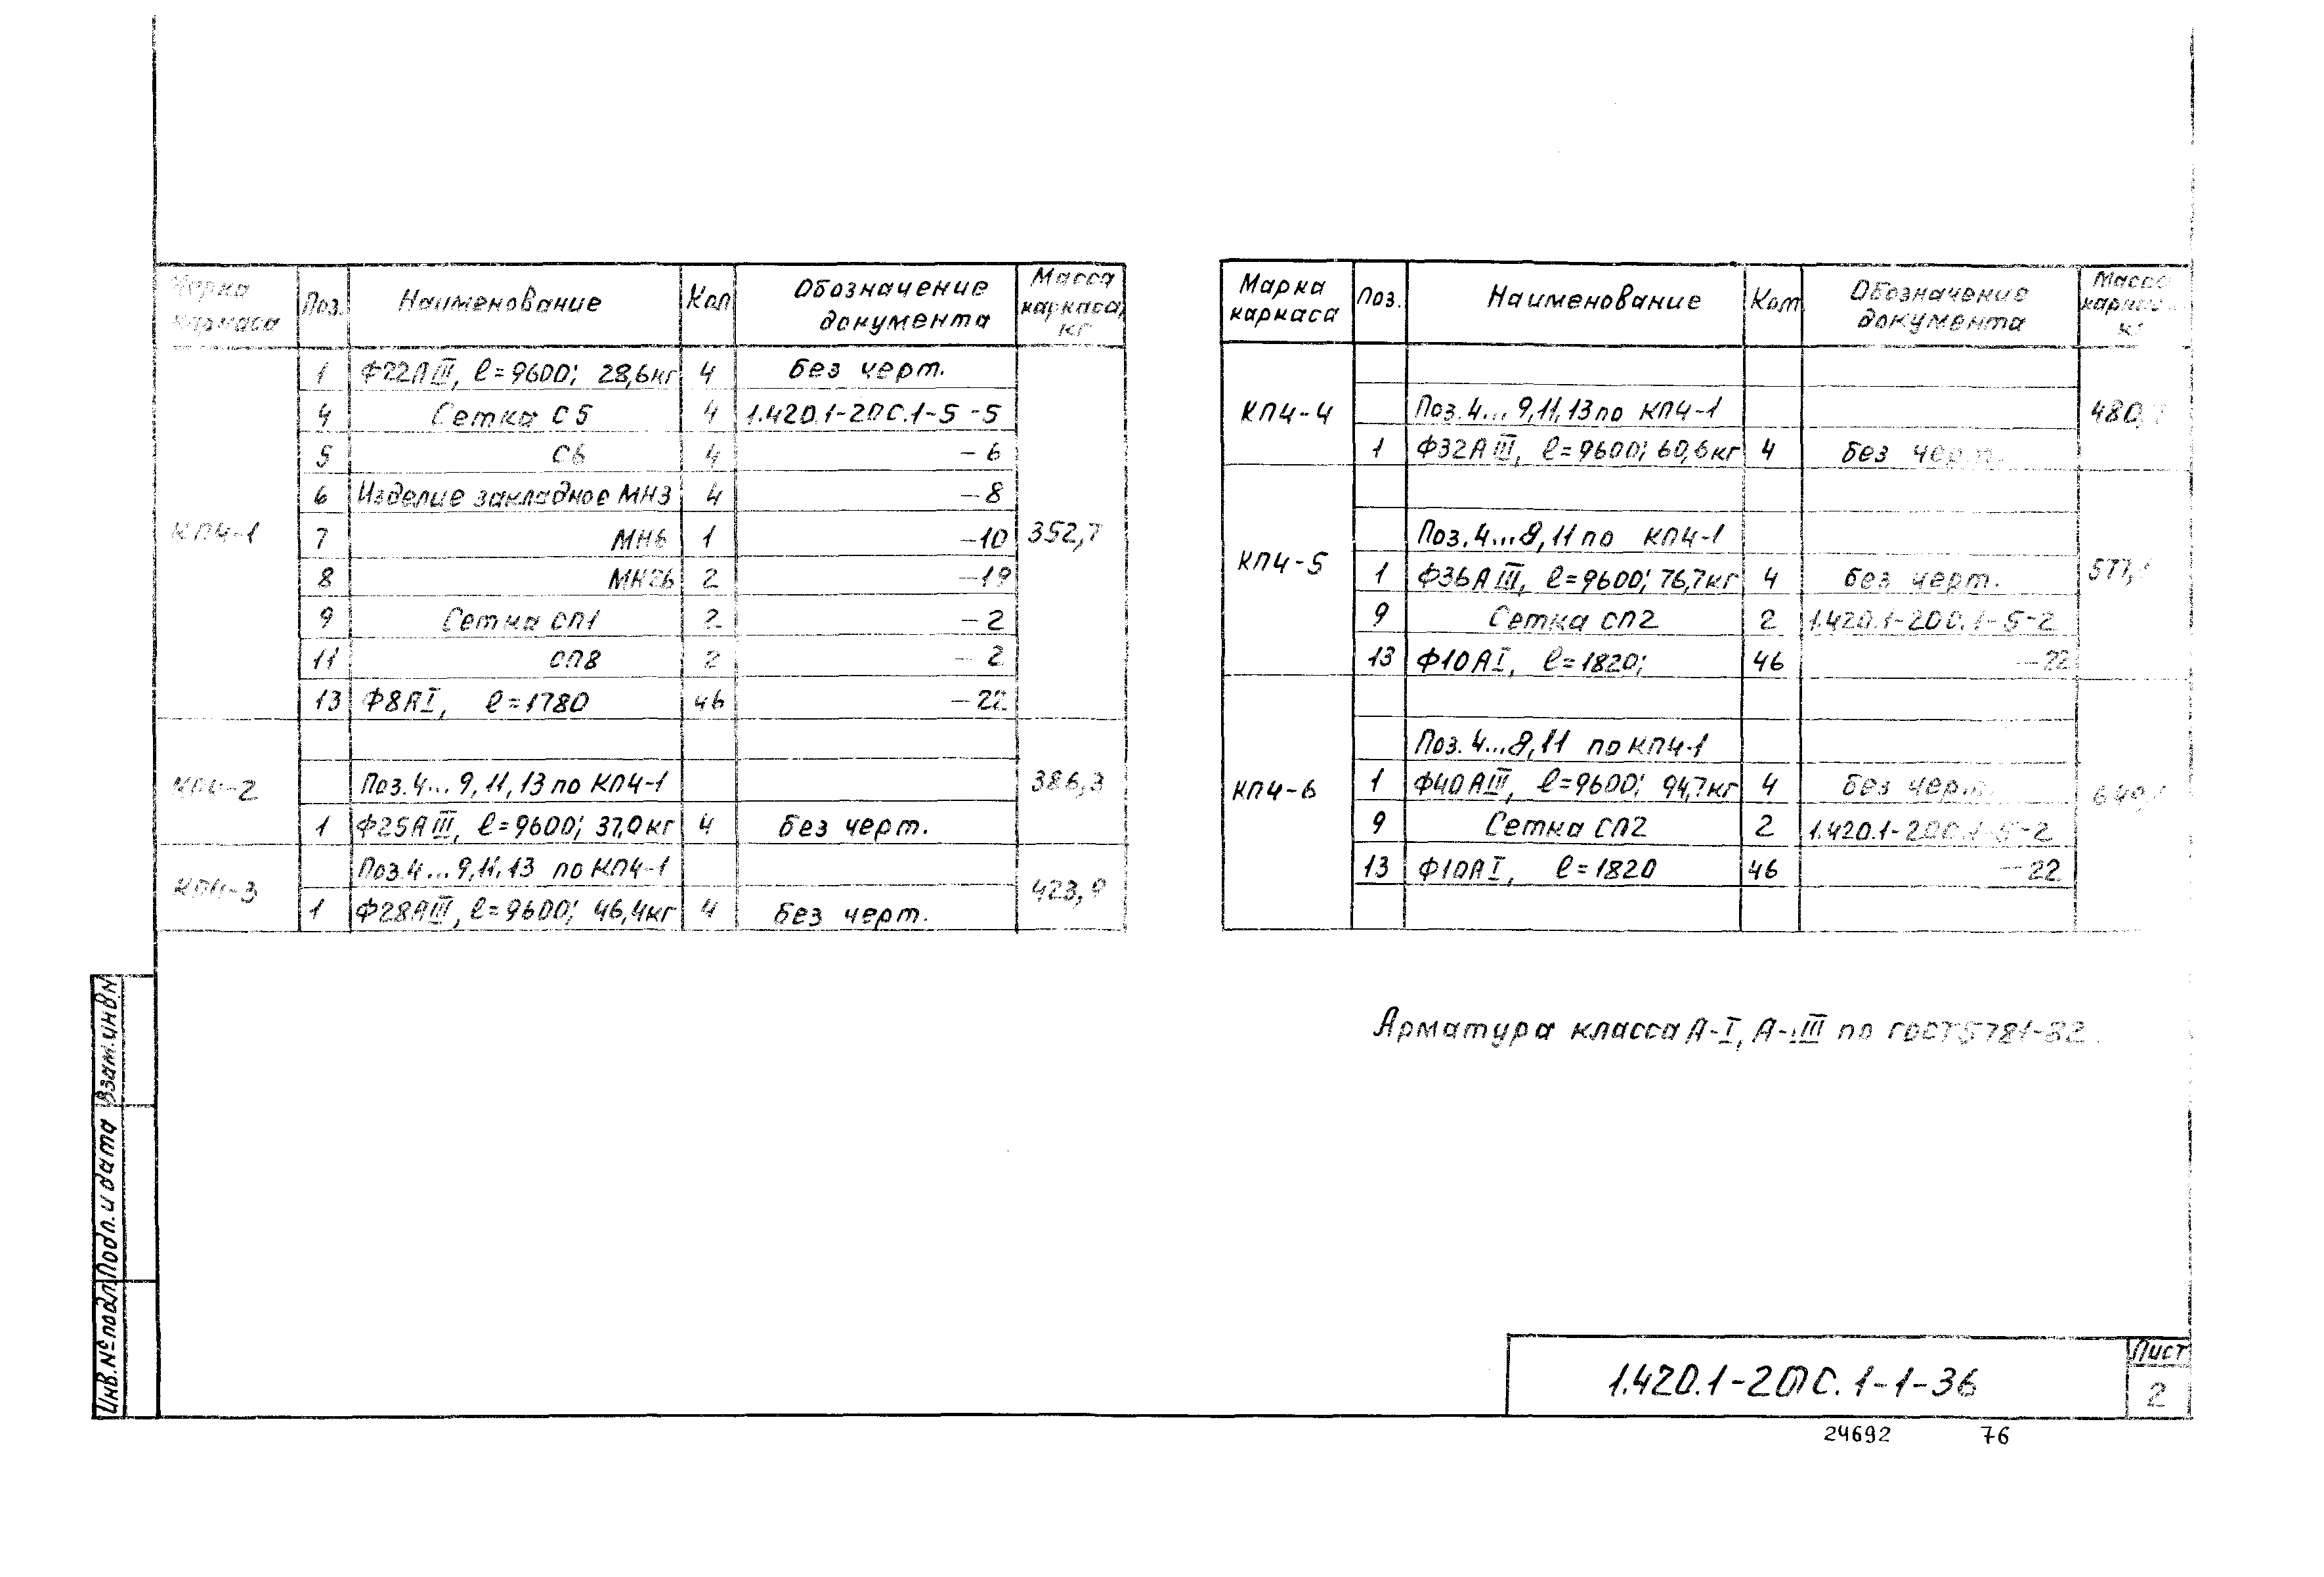 Марка каркаса | Поз. | Наименование | Кол | Обозначение документа | Масса каркаса, кг
КП4-1 | 1 | Ф22АIII, ℓ=9600; 28,6кг | 4 | Без черт. | 352,7
4 | Сетка С5 | 4 | 1.420.1-20С.1-5 -5
5 | С6 | 4 | -6
6 | Изделие закладное МН3 | 4 | -8
7 | МН6 | 1 | -10
8 | МН26 | 2 | -19
9 | Сетка СП1 | 2 | -2
11 | СП8 | 2 | -2
13 | Ф8АI, ℓ=1780 | 46 | -22
КП4-2 | Поз.4...9,11,13 по КП4-1 | 386,3
1 | Ф25АIII, ℓ=9600; 37,0кг | 4 | Без черт.
КП4-3 | Поз.4...9,11,13 по КП4-1 | 423,9
1 | Ф28АIII, ℓ=9600; 46,4кг | 4 | Без черт.
Марка каркаса | Поз. | Наименование | Кол | Обозначение документа | Масса каркаса кг
КП4-4 | Поз.4...9,11,13 по КП4-1
1 | Ф32АIII, ℓ=9600; 60,6кг | 4 | Без черт.
КП4-5 | Поз.4...8,11 по КП4-1
1 | Ф36АIII, ℓ=9600; 76,7кг | 4 | Без черт.
9 | Сетка СП2 | 2 | 1.420.1-20С.1-5-2
13 | Ф10АI, ℓ=1820; | 46 | -22
КП4-6 | Поз.4...8,11 по КП4-1
1 | Ф40АIII, ℓ=9600; 94,7кг | 4 | Без черт.
9 | Сетка СП2 | 2 | 1.420.1-20С.1-5-2
13 | Ф10АI, ℓ=1820 | 46 | -22
Арматура класса А-I, А-III по ГОСТ 5781-82.
Инв.№подл Подп. и дата Взам.инв№
1.420.1-20ПС.1-1-36
Лист
2
24692 76